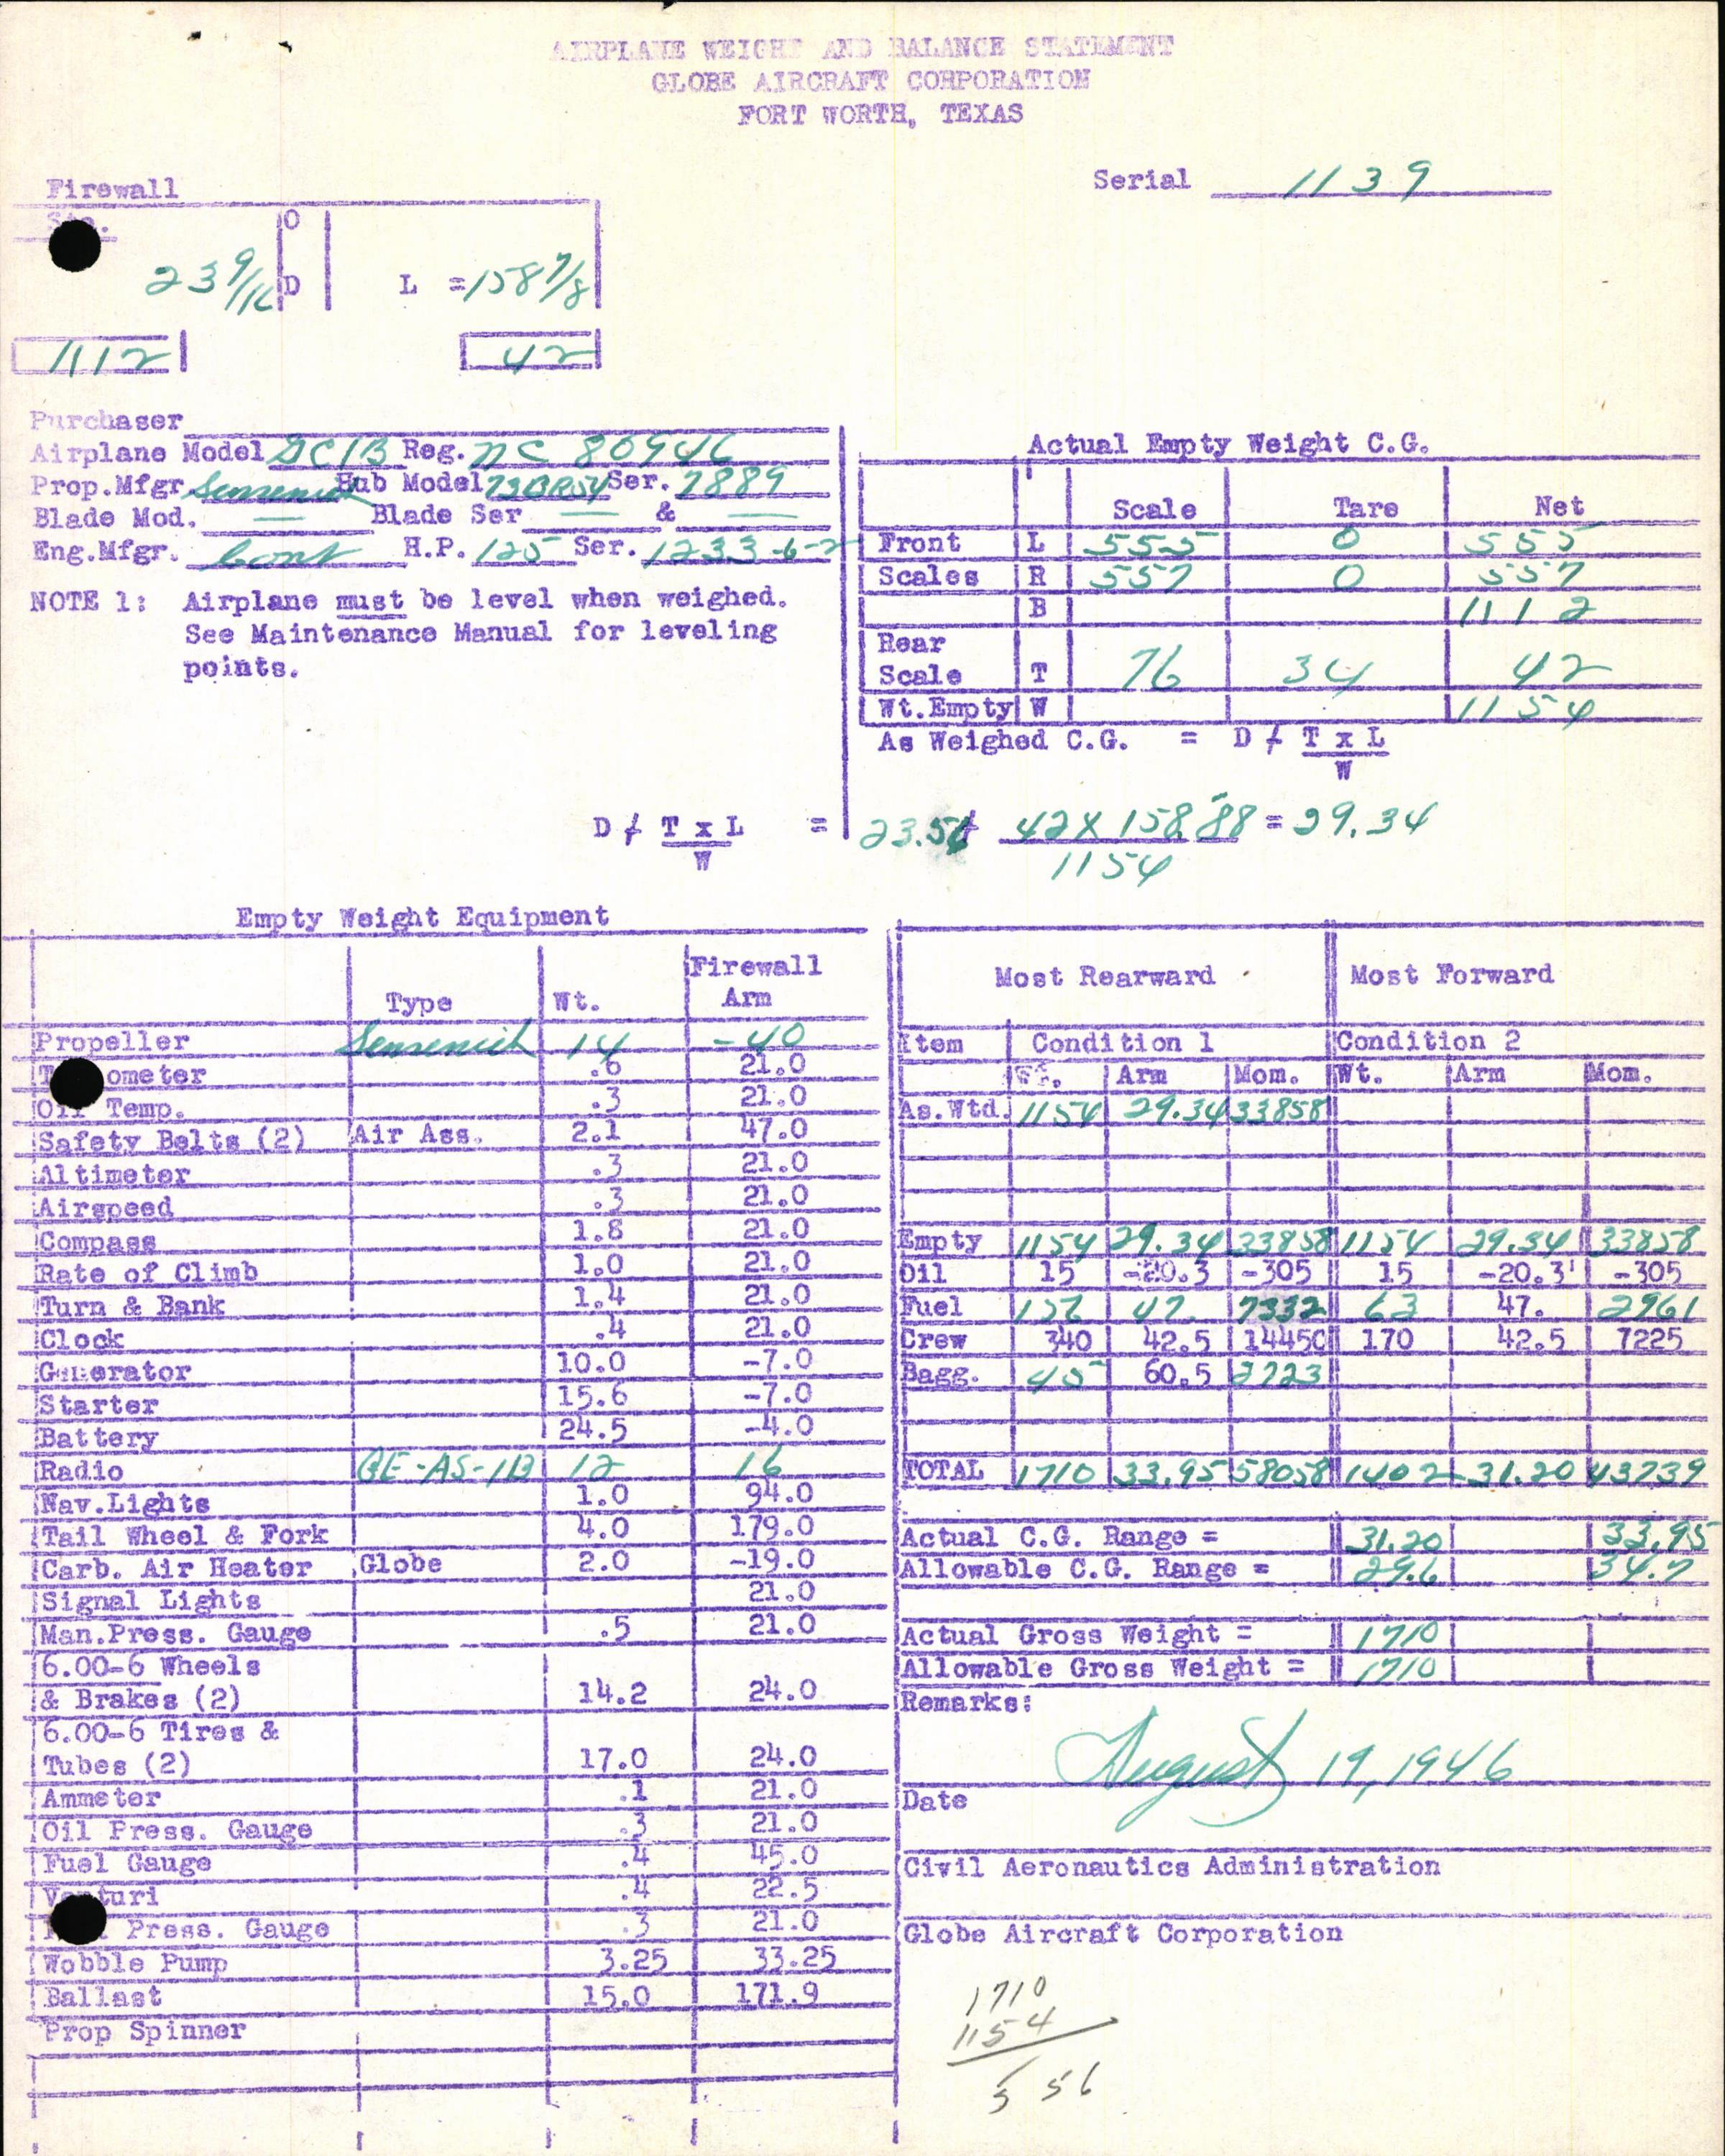 AIRPLANE WEIGHT AND BALANCE STATEMENT
GLOBE AIRCRAFT CORPORATION
FORT WORTH, TEXAS
Serial 1139
Firewall
Sta.
O
23 9/16 D L = 158 7/8
1112 42
Purchaser
Airplane Model GC1B Reg. NC 80946
Prop.Mfgr Sensenich Hub Model 73BR54 Ser. 7889
Blade Mod. — Blade Ser — & —
Eng.Mfgr. Cont H.P. 125 Ser. 1233-6-2
NOTE 1: Airplane must be level when weighed.
See Maintenance Manual for leveling
points.
Actual Empty Weight C.G.
Scale Tare Net
Front L 555 0 555
Scales R 557 0 557
B 1112
Rear
Scale T 76 34 42
Wt.Empty W 1154
As Weighed C.G. = D ≠ T x L
W
D ≠ T x L = 23.56 + 42 X 158.88 = 29.34
W 1154
Empty Weight Equipment
Type Wt. Firewall Arm
Propeller Sensenich 14 -40
T ometer .6 21.0
Oil Temp. .3 21.0
Safety Belts (2) Air Ass. 2.1 47.0
Altimeter .3 21.0
Airspeed .3 21.0
Compass 1.8 21.0
Rate of Climb 1.0 21.0
Turn & Bank 1.4 21.0
Clock .4 21.0
Generator 10.0 -7.0
Starter 15.6 -7.0
Battery 24.5 -4.0
Radio GE-AS-1B 12 16
Nav.Lights 1.0 94.0
Tail Wheel & Fork 4.0 179.0
Carb. Air Heater Globe 2.0 -19.0
Signal Lights 21.0
Man.Press. Gauge .5 21.0
6.00-6 Wheels
& Brakes (2) 14.2 24.0
6.00-6 Tires &
Tubes (2) 17.0 24.0
Ammeter .1 21.0
Oil Press. Gauge .3 21.0
Fuel Gauge .4 45.0
Venturi .4 22.5
Press. Gauge .3 21.0
Wobble Pump 3.25 33.25
Ballast 15.0 171.9
Prop Spinner
Most Rearward Most Forward
Item Condition 1 Condition 2
Wt. Arm Mom. Wt. Arm Mom.
As.Wtd. 1154 29.34 33858
Empty 1154 29.34 33858 1154 29.34 33858
Oil 15 -20.3 -305 15 -20.3 -305
Fuel 156 47. 7332 63 47. 2961
Crew 340 42.5 14450 170 42.5 7225
Bagg. 45 60.5 2723
TOTAL 1710 33.95 58058 1402 31.20 43739
Actual C.G. Range = 31.20 33.95
Allowable C.G. Range = 29.6 34.7
Actual Gross Weight = 1710
Allowable Gross Weight = 1710
Remarks:
August 19, 1946
Date
Civil Aeronautics Administration
Globe Aircraft Corporation
1710
1154
556